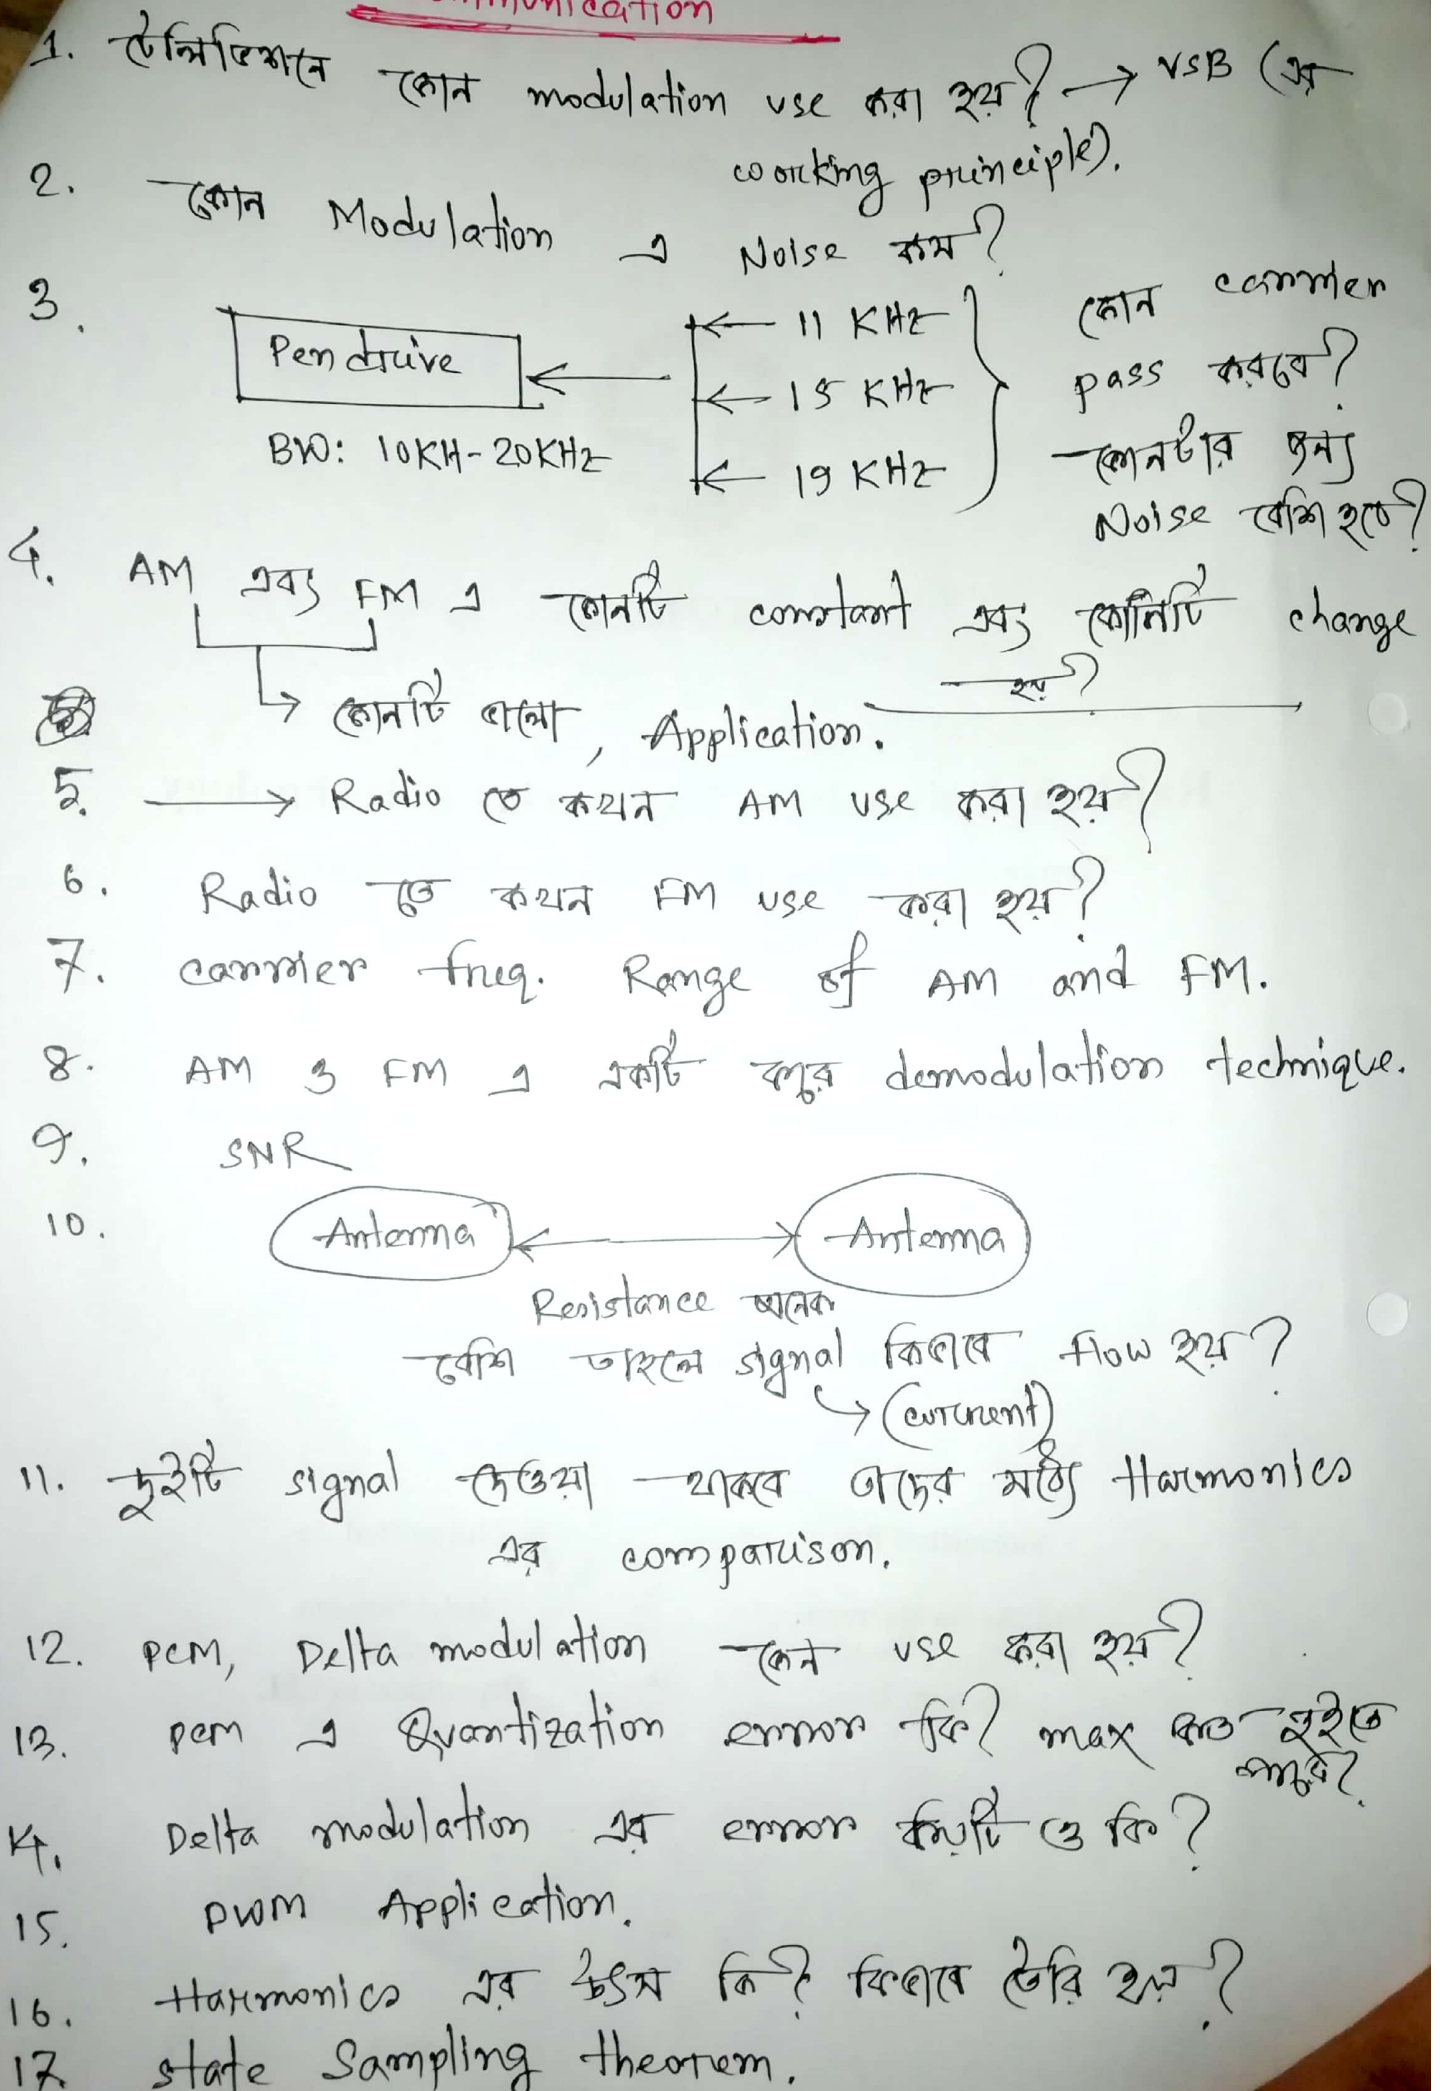 mmunication
1. টেলিভিশনে কোন modulation use করা হয়? → VSB (এর
working principle).
2. কোন Modulation এ Noise কম?
3. Pendrive ← ← 11 KHz
← 15 KHz
← 19 KHz
BW: 10KH-20KHz
কোন carrier
pass করবে?
কোনটার জন্য
Noise বেশি হবে?
4. AM এবং FM এ কোনটি constant এবং কোনটি change
হয়?
→ কোনটি ভালো, Application.
5. → Radio তে কখন AM use করা হয়?
6. Radio তে কখন FM use করা হয়?
7. carrier freq. Range of AM and FM.
8. AM ও FM এ একটি করে demodulation technique.
9. SNR
10. Antenna ↔ Antenna
Resistance অনেক
বেশি তাহলে signal কিভাবে flow হয়?
→ (current)
11. দুইটি signal দেওয়া থাকবে তাদের মধ্যে Harmonics
এর comparison.
12. PCM, Delta modulation কেন use করা হয়?
13. PCM এ Quantization error কি? max কত হইতে
পারে?
14. Delta modulation এর error কয়টি ও কি?
15. PWM Application.
16. Harmonics এর উৎস কি? কিভাবে তৈরি হয়?
17. state Sampling theorem.